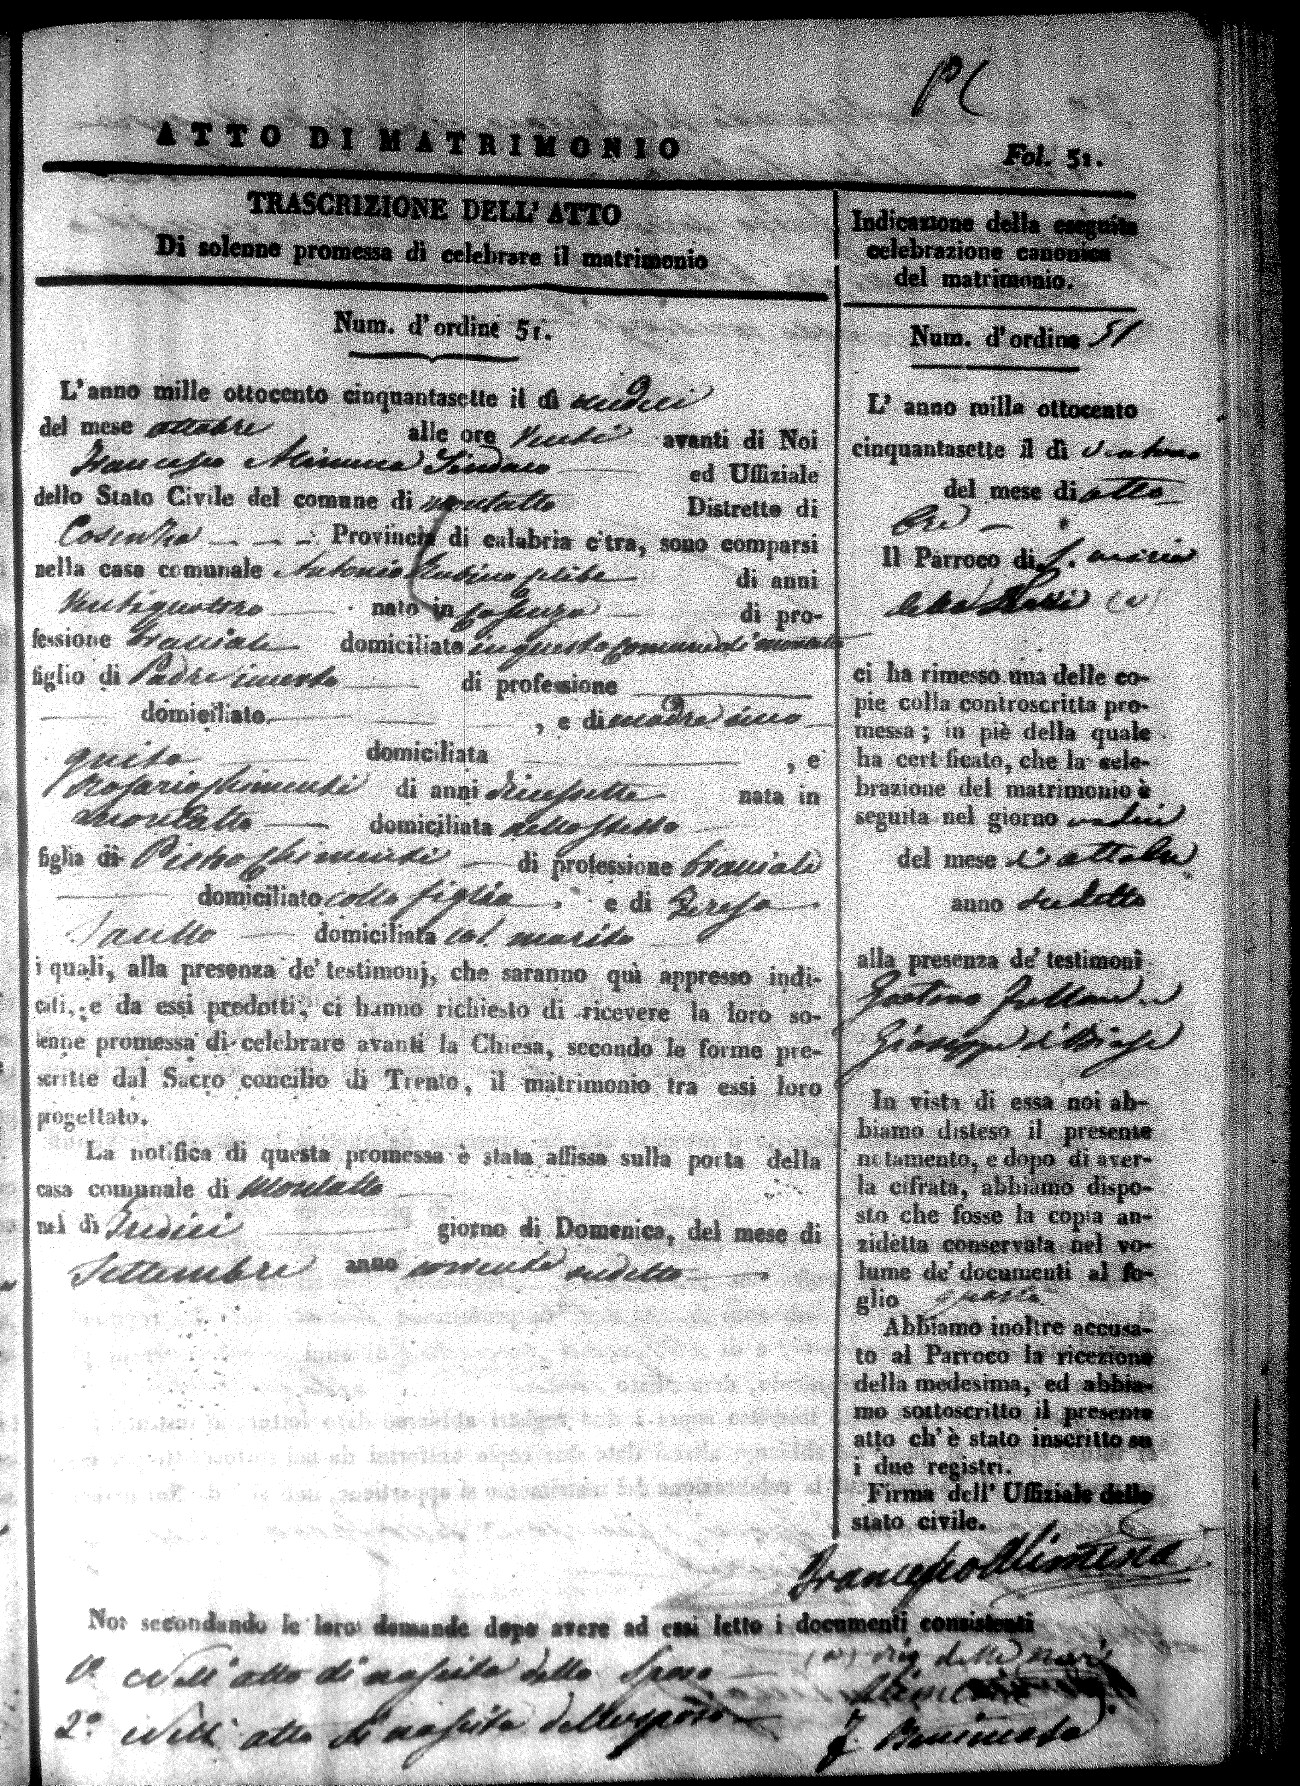 ATTO DI MATRIMONIO
Fol. 51.
TRASCRIZIONE DELL' ATTO
Di solenne promessa di celebrare il matrimonio
Num. d'ordine 51.
L'anno mille ottocento cinquantasette il dì undici
del mese ottobre alle ore venti avanti di Noi
Francesco Alimena Sindaco ed Uffiziale
dello Stato Civile del comune di montalto Distretto di
Cosenza Provincia di calabria c'tra, sono comparsi
nella casa comunale Antonio di anni
Ventiquattro nato in Cosenza di pro-
fessione bracciale domiciliato in questo Comune di montalto
figlio di Padre incerto di professione
domiciliato , e di madre inco
gnita domiciliata , e
Rosaria Chimenti di anni diciassette nata in
Montalto domiciliata nello stesso
figlia di Pietro Chimenti di professione bracciale
domiciliato colla figlia e di Teresa
domiciliata col marito
i quali, alla presenza de' testimonj, che saranno quì appresso indi-
cati, e da essi prodotti, ci hanno richiesto di ricevere la loro so-
lenne promessa di celebrare avanti la Chiesa, secondo le forme pre-
scritte dal Sacro concilio di Trento, il matrimonio tra essi loro
progettato.
La notifica di questa promessa è stata affissa sulla porta della
casa comunale di Montalto
nel dì giorno di Domenica, del mese di
Settembre anno corrente sudetto
Indicazione della eseguita
celebrazione canonica
del matrimonio.
Num. d'ordine 51
L' anno mille ottocento
cinquantasette il dì
del mese di otto
bre
Il Parroco di S. maria
della
ci ha rimesso una delle co-
pie colla controscritta pro-
messa; in piè della quale
ha certificato, che la cele-
brazione del matrimonio è
seguita nel giorno undici
del mese d'ottobre
anno sudetto
alla presenza de' testimoni
Gaetano
Giuseppe
In vista di essa noi ab-
biamo disteso il presente
notamento, e dopo di aver-
la cifrata, abbiamo dispo-
sto che fosse la copia an-
zidetta conservata nel vo-
lume de' documenti al fo-
glio
Abbiamo inoltre accusa-
to al Parroco la ricezione
della medesima, ed abbia-
mo sottoscritto il presente
atto ch' è stato inscritto su
i due registri.
Firma dell' Uffiziale dello
stato civile.
Francesco Alimena
Noi secondando le loro domande dopo avere ad essi letto i documenti consistenti
1º Nell' atto di nascita dello Sposo
2º Nell' atto di nascita della sposa
Alimena